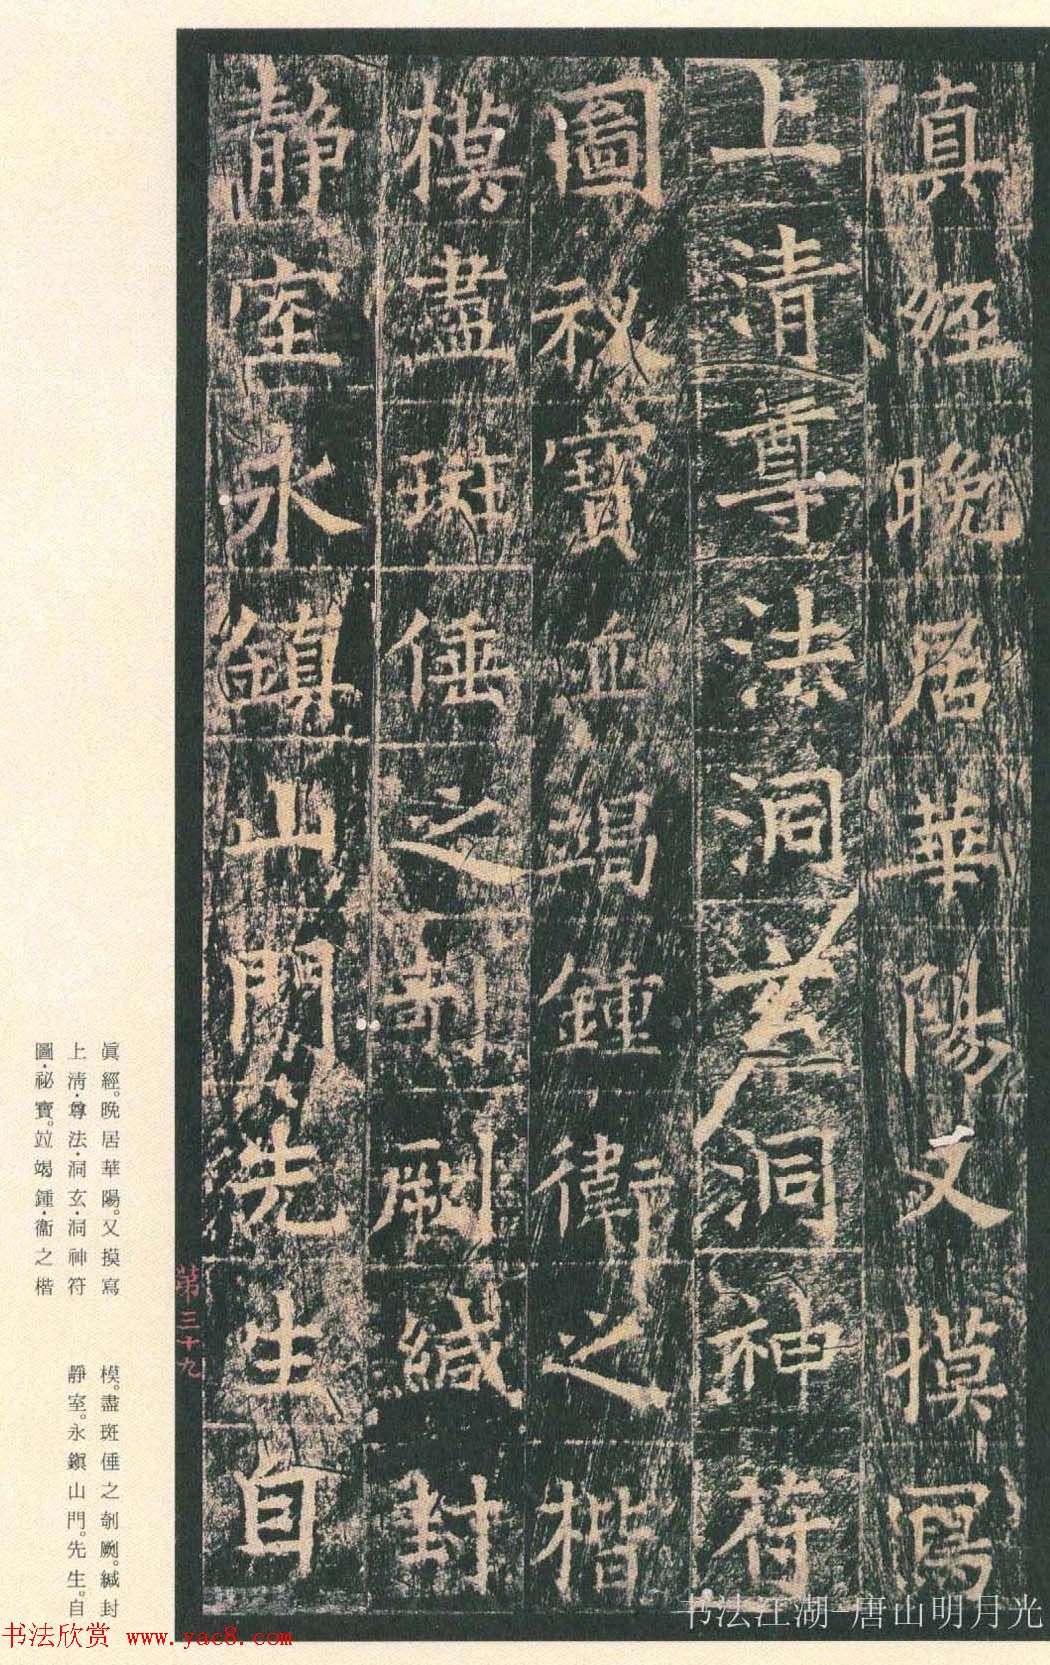 真經晚居華陽又摸寫
上清尊法洞玄洞神符
圖祕寶並竭鍾衛之楷
模盡班倕之剞劂緘封
靜室永鎮山門先生自
第三十九
眞經。晚居華陽。又摸寫
上清·尊法·洞玄·洞神符
圖·祕寶。竝竭鍾·衞之楷
模。盡班倕之剞劂。緘封
靜室。永鎭山門。先生。自
书法江湖-唐山明月光
书法欣赏 www.yac8.com